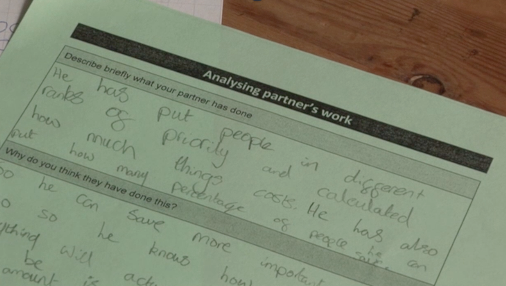 Analysing partner's work
Describe briefly what your partner has done
He has put people in different
ranks of priority and calculated
how much things costs. He has also
put how many percentage of people he can
Why do you think they have done this?
so he can save more important
so he knows how
will
be
amount is